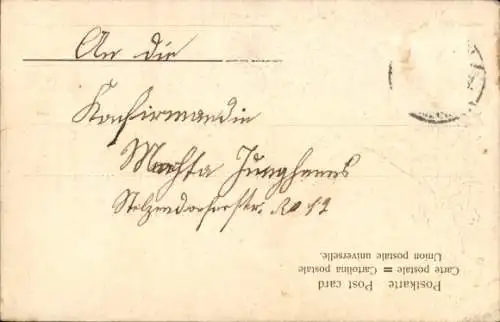 An die
Konfirmandin
Martha Junghanns
Stelzendorferstr. No 12
Postkarte Post card
Carte postale = Cartolina postale
Union postale universelle.